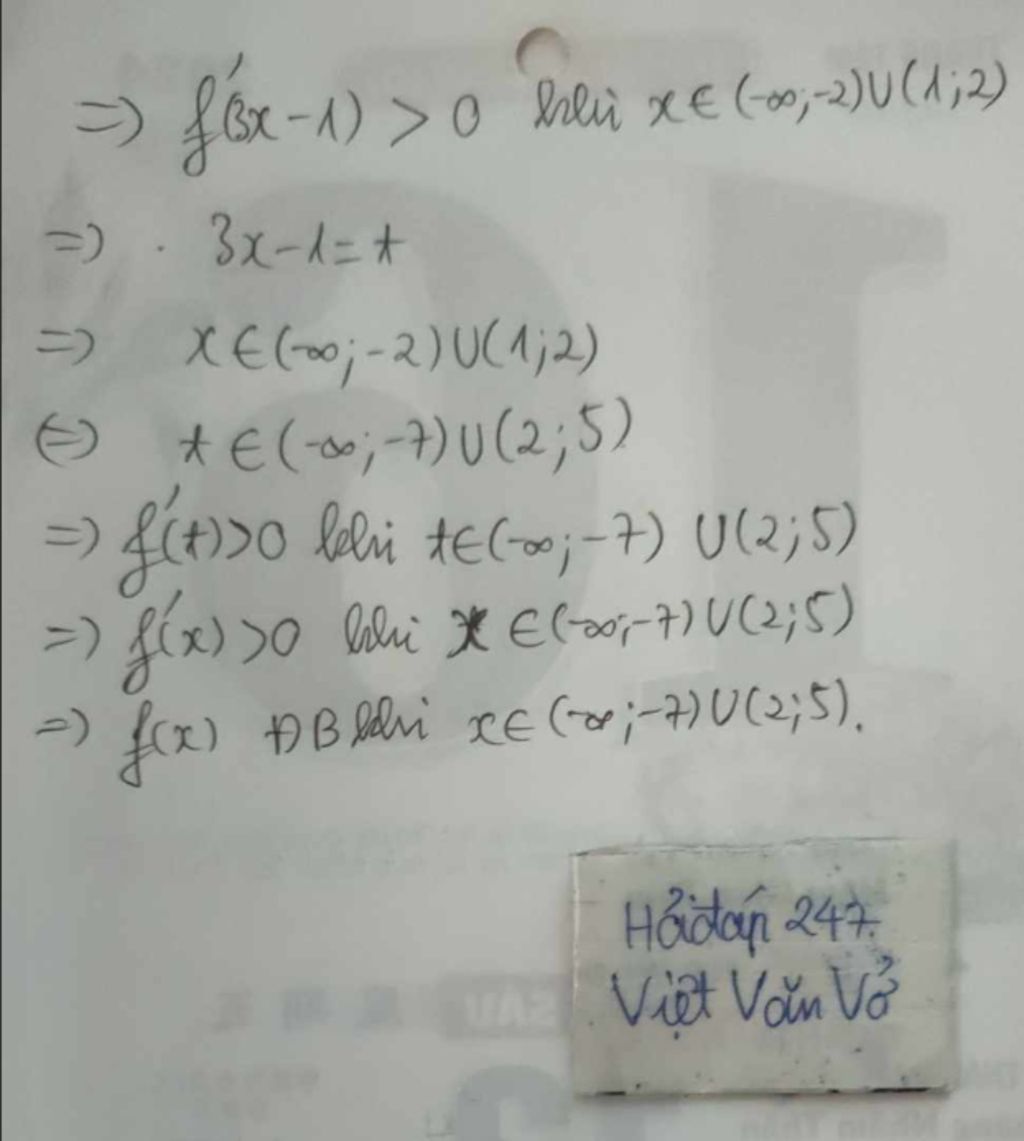 => f'(3x-1) > 0 khi x∈(-∞;-2)∪(1;2)
=> . 3x-1=t
=> x∈(-∞;-2)∪(1;2)
<=> t∈(-∞;-7)∪(2;5)
=> f'(t)>0 khi t∈(-∞;-7) ∪(2;5)
=> f'(x)>0 khi x∈(-∞;-7)∪(2;5)
=> f(x) ĐB khi x∈(-∞;-7)∪(2;5).
Hỏi đáp 247.
Việt Văn Vở